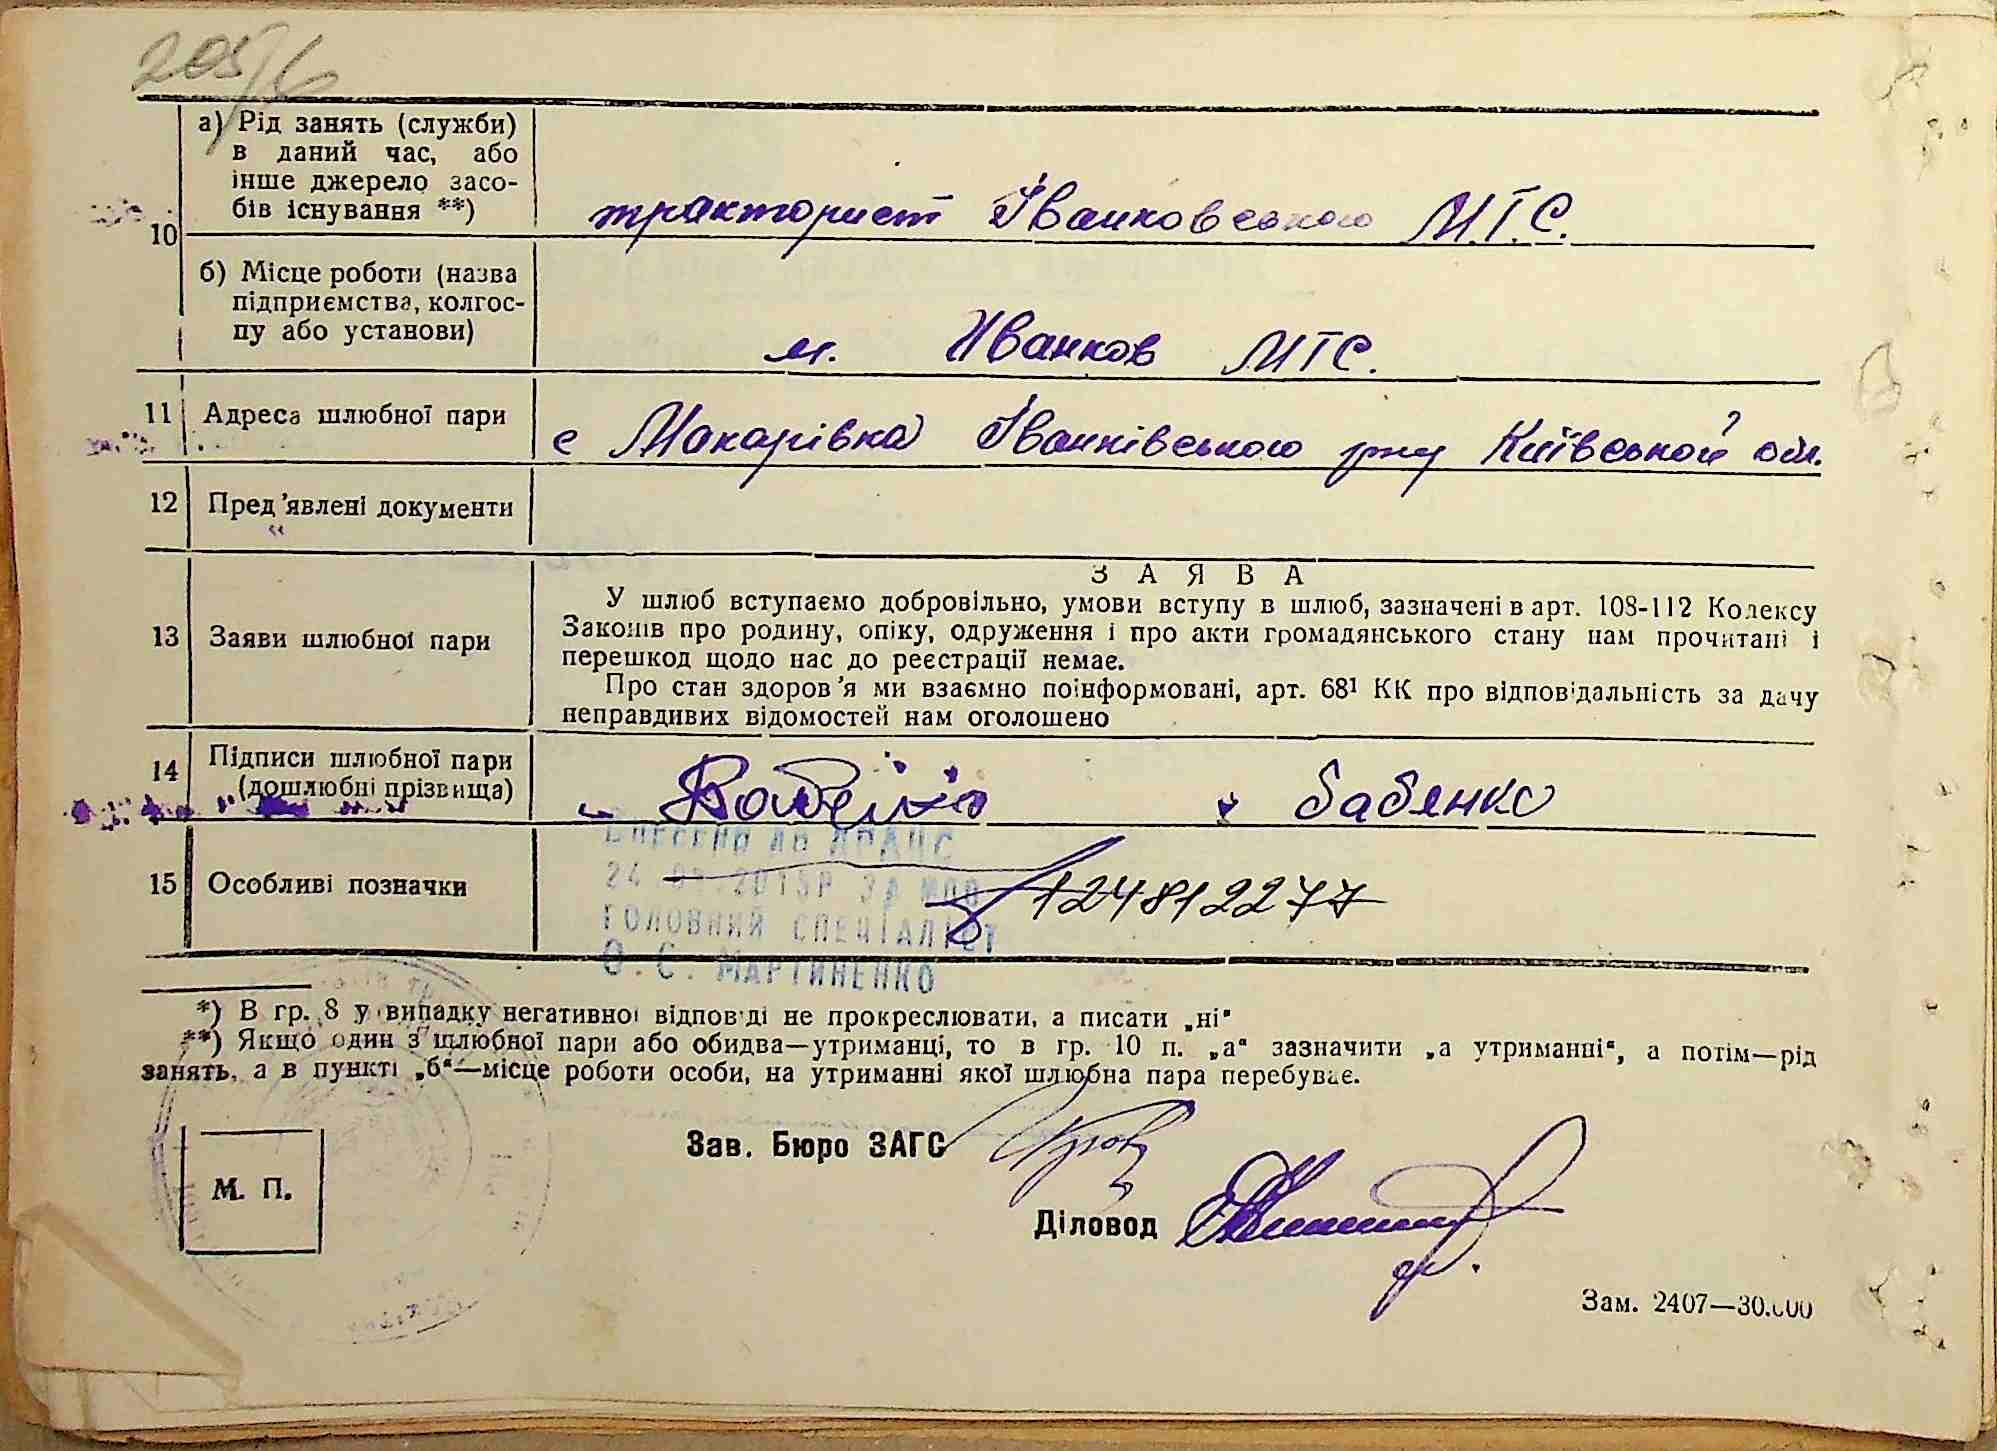 205
а) Рід занять (служби)
в даний час, або
інше джерело засо-
бів існування **)
тракторист Іванковського М.Т.С.
10
б) Місце роботи (назва
підприємства, колгос-
пу або установи)
м. Иванков МТС.
11 Адреса шлюбної пари
с Макарівка Іванківського р-ну Київської обл.
12 Пред'явлені документи
ЗАЯВА
13 Заяви шлюбної пари
У шлюб вступаємо добровільно, умови вступу в шлюб, зазначені в арт. 108-112 Кодексу
Законів про родину, опіку, одруження і про акти громадянського стану нам прочитані і
перешкод щодо нас до реєстрації немає.
Про стан здоров'я ми взаємно поінформовані, арт. 68¹ КК про відповідальність за дачу
неправдивих відомостей нам оголошено
14 Підписи шлюбної пари
(дошлюбні прізвища)
бабянко
15 Особливі позначки
ВНЕСЕНО ДО ДРАЦС
ГОЛОВНИЙ СПЕЦІАЛІСТ
О.С. МАРТИНЕНКО
124812277
*) В гр. 8 у випадку негативної відповіді не прокреслювати, а писати „ні"
**) Якщо один з шлюбної пари або обидва—утриманці, то в гр. 10 п. „а" зазначити „а утриманні", а потім—рід
занять, а в пункті „б"—місце роботи особи, на утриманні якої шлюбна пара перебуває.
Зав. Бюро ЗАГС
М. П.
Діловод
Зам. 2407—30.000